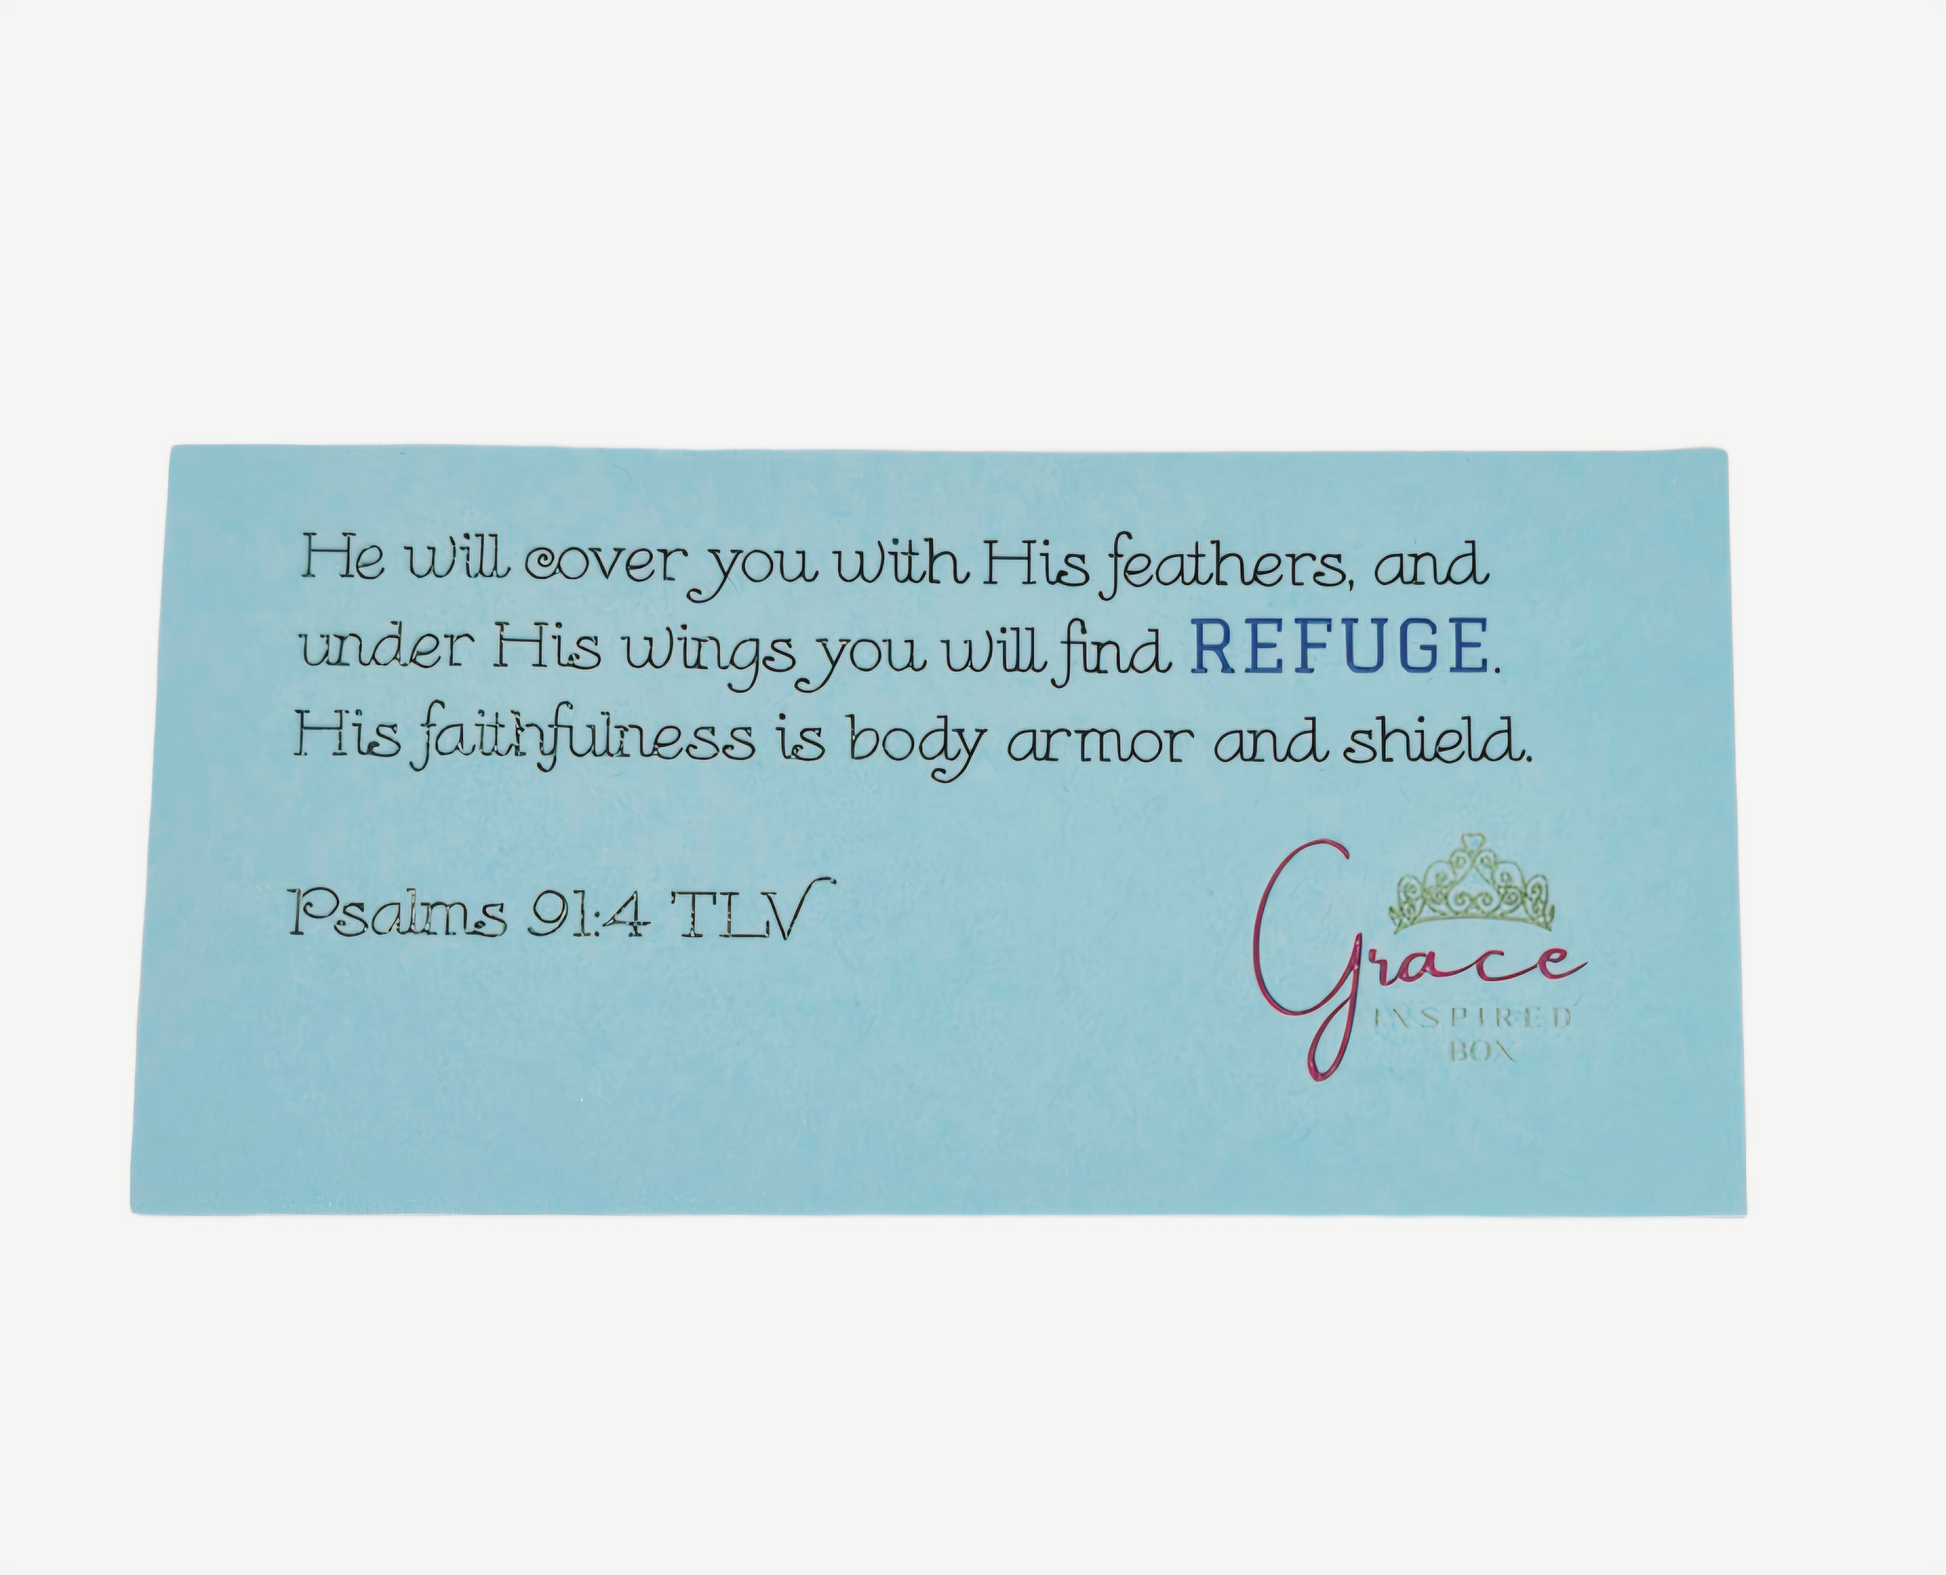 He will cover you with His feathers, and
under His wings you will find REFUGE.
His faithfulness is body armor and shield.
Psalms 91:4 TLV
Grace
INSPIRED
BOX